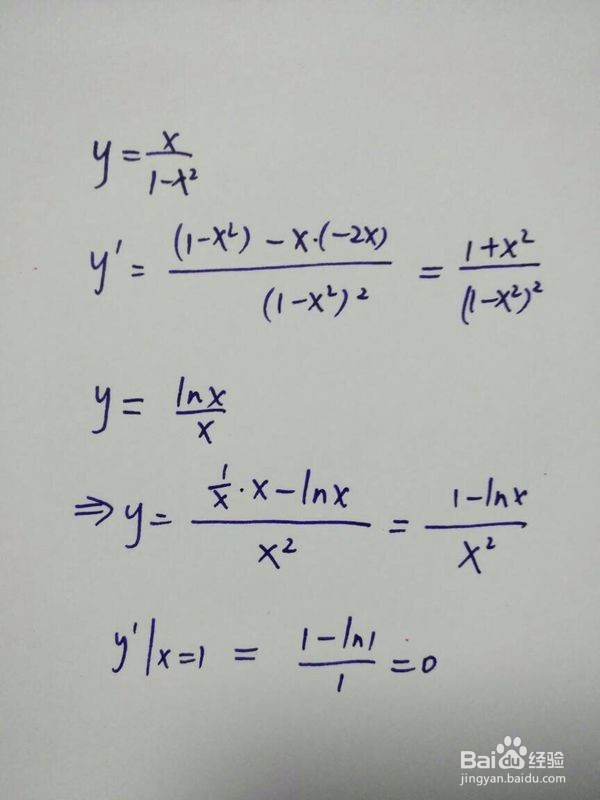 y = x/(1-x²)
y' = ((1-x²) - x·(-2x))/(1-x²)² = (1+x²)/(1-x²)²
y = lnx/x
⇒ y = (1/x · x - lnx)/x² = (1-lnx)/x²
y'|x=1 = (1-ln1)/1 = 0
Baidu经验
jingyan.baidu.com